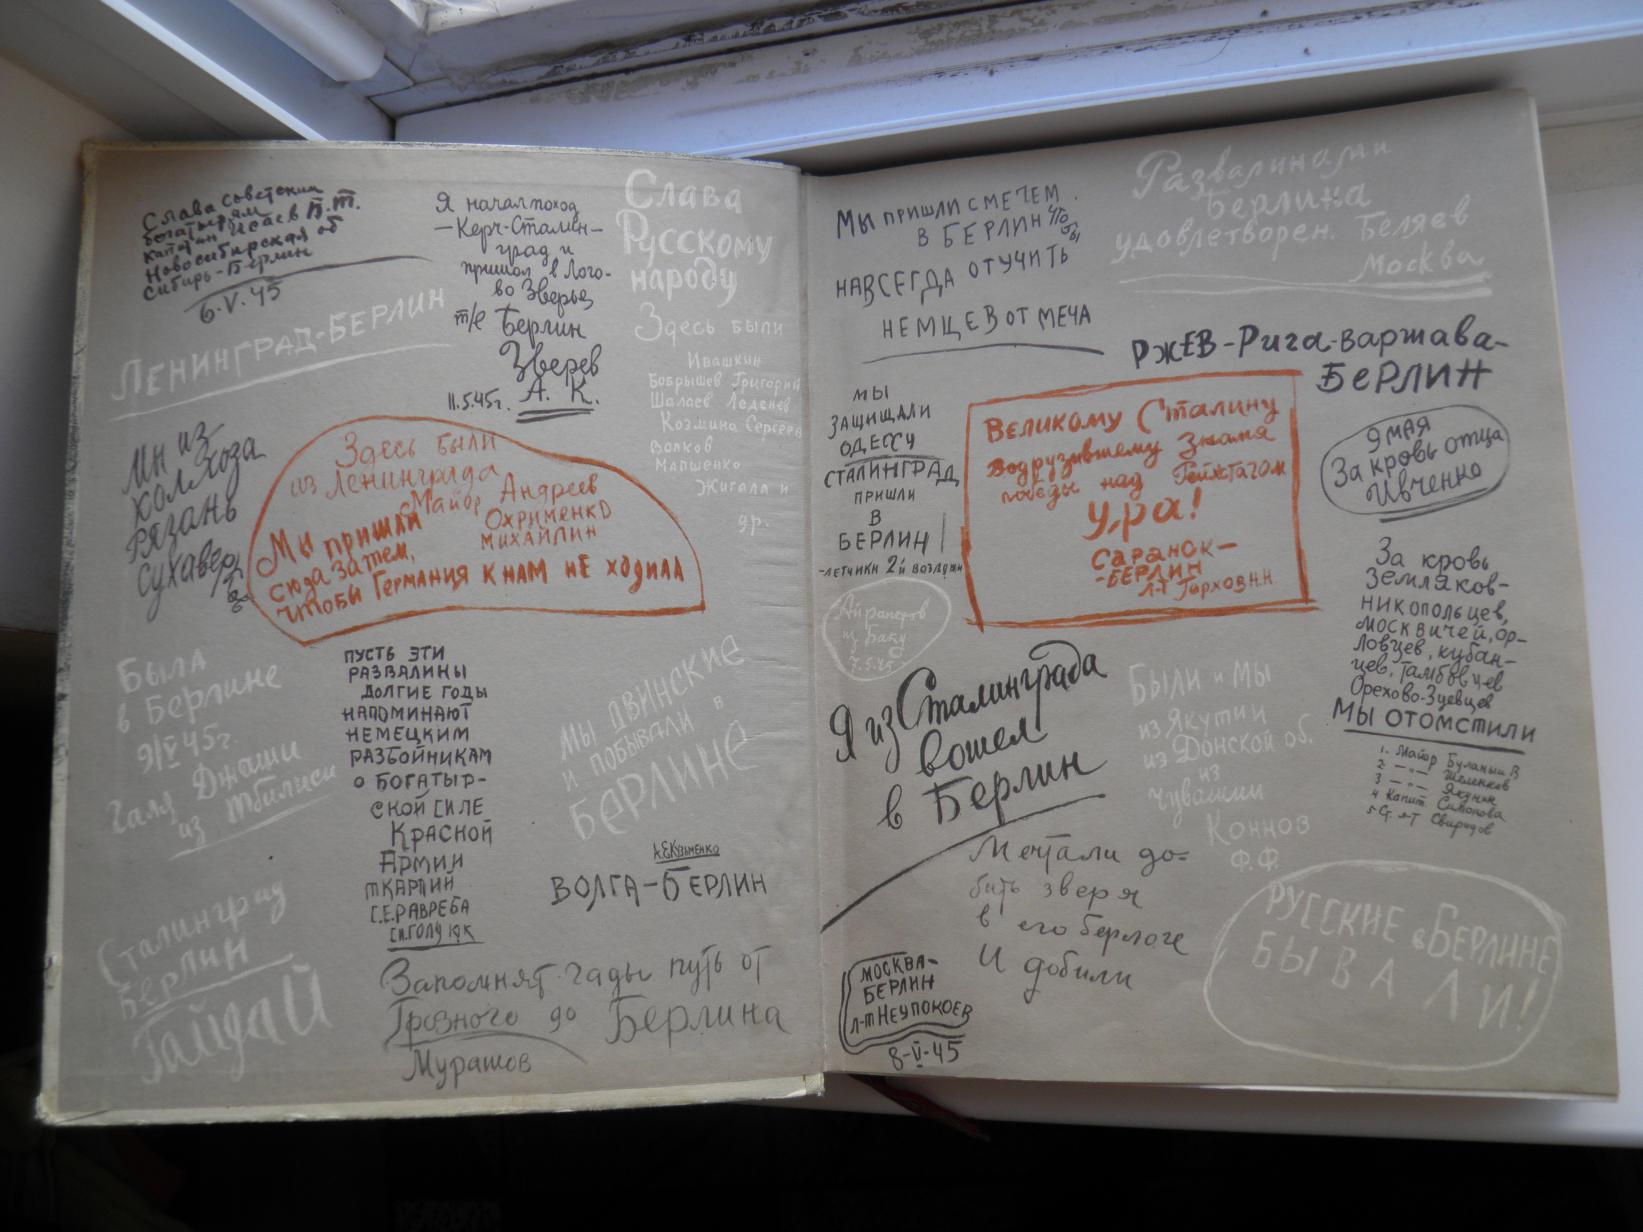 Слава советским
богатырям
капитан Исаев П.Т.
Новосибирская об
Сибирь-Берлин
6.V.45
Я начал поход
—Керч-Сталин-
град и
пришол в Лого-
во Зверье,
т/е Берлин
Зверев
11.5.45г. А. К.
Слава
Русскому
народу
Здесь были
Ивашкин
Бобрышев Григорий
Шалаев Леденев
Козмина Сергеев
Волков
Маршенко
Жигала и
др.
ЛЕНИНГРАД-БЕРЛИН
Мы из
колхоза
Рязань
Здесь были
из Ленинграда
Майор Андреев
Охрименко
Михайлин
Мы пришли
сюда затем,
чтобы Германия к нам не ходила
Была
в Берлине
9/V 45г.
Галя Джаши
из Тбилиси
ПУСТЬ ЭТИ
РАЗВАЛИНЫ
ДОЛГИЕ ГОДЫ
НАПОМИНАЮТ
НЕМЕЦКИМ
РАЗБОЙНИКАМ
О БОГАТЫР-
СКОЙ СИЛЕ
КРАСНОЙ
АРМИИ
С.Е.РАВРЕБА
МЫ ДВИНСКИЕ
И ПОБЫВАЛИ в
БЕРЛИНЕ
А.Е.Кузьменко
ВОЛГА-БЕРЛИН
Сталинград
Берлин
Гайдай
Запомнят гады путь от
Грозного до Берлина
Мурашов
МЫ ПРИШЛИ С МЕЧЕМ
В БЕРЛИН ЧТОБЫ
НАВСЕГДА ОТУЧИТЬ
НЕМЦЕВ ОТ МЕЧА
Развалинами
Берлина
удовлетворен. Беляев
Москва
РЖЕВ-Рига-варшава-
БЕРЛИН
МЫ
ЗАЩИЩАЛИ
ОДЕССУ
СТАЛИНГРАД
ПРИШЛИ
В
БЕРЛИН
-ЛЕТЧИКИ 2й воздушн
ВЕЛИКОМУ Сталину
водрузившему Знамя
победы над Рейхстагом
Ура!
САРАНСК-
-БЕРЛИН
Л-Т Горхов Н.Н
9 МАЯ
За кровь отца
Ивченко
Айрапетов
из Баку
7.5.45
За кровь
земляков-
никопольцев,
москвичей, ор-
ловцев, кубан-
цев, тамбовцев
Орехово-Зуевцев
Мы отомстили
1. Майор Буланый В
2 —"— Шеленков
3 —"— Якунин
4 Капит. Симонова
5 Ст. л-т Свиридов
Я из Сталинграда
вошел
в Берлин
Были и мы
из Якутии
из Донской об.
из
Чувашии
Коннов
Ф.Ф.
Мечтали до-
бить зверя
в его берлоге
И добили
МОСКВА-
БЕРЛИН
Л-Т НЕУПОКОЕВ
8-V-45
РУССКИЕ в БЕРЛИНЕ
БЫВАЛИ!